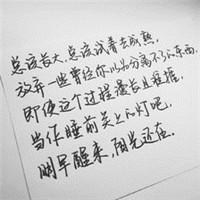 总该长大,总该试着去成熟,
放弃一些曾经你以为分离不了的东西.
即使这个过程漫长且程擁,
当作睡前关上的灯吧,
明早醒来,阳光还在.